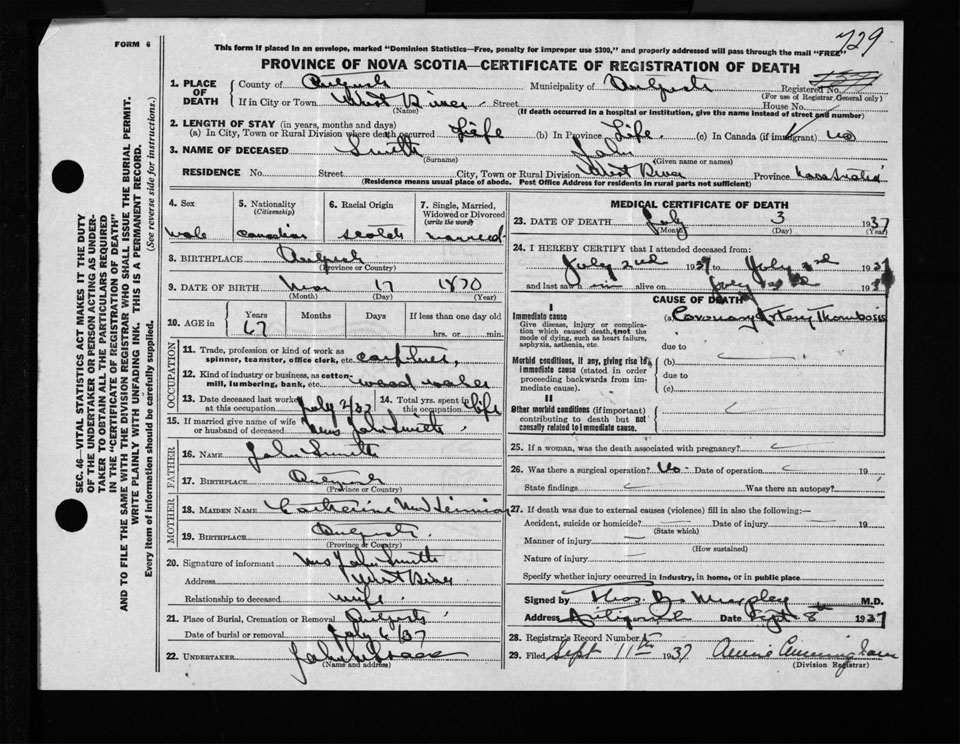 729
FORM 6
This form if placed in an envelope, marked "Dominion Statistics—Free, penalty for improper use $300," and properly addressed will pass through the mail "FREE"
PROVINCE OF NOVA SCOTIA—CERTIFICATE OF REGISTRATION OF DEATH
1. PLACE OF DEATH
County of
Municipality of
Registered No.
(For use of Registrar General only)
If in City or Town West River Street House No.
(Name) (If death occurred in a hospital or institution, give the name instead of street and number)
2. LENGTH OF STAY (in years, months and days)
(a) In City, Town or Rural Division where death occurred Life (b) In Province Life (c) In Canada (if immigrant) no
3. NAME OF DECEASED Smith John
(Surname) (Given name or names)
RESIDENCE No. Street City, Town or Rural Division West River Province Nova Scotia
(Residence means usual place of abode. Post Office Address for residents in rural parts not sufficient)
4. Sex male
5. Nationality (Citizenship) Canadian
6. Racial Origin
7. Single, Married, Widowed or Divorced (write the word) married
8. BIRTHPLACE
(Province or Country)
9. DATE OF BIRTH 17 1870
(Month) (Day) (Year)
10. AGE in Years Months Days If less than one day old
67 hrs. or min.
OCCUPATION
11. Trade, profession or kind of work as spinner, teamster, office clerk, etc.
12. Kind of industry or business, as cotton-mill, lumbering, bank, etc. wood
13. Date deceased last worked at this occupation July 2/37
14. Total yrs. spent in this occupation life
15. If married give name of wife or husband of deceased Mrs John Smith
FATHER
16. NAME John Smith
17. BIRTHPLACE
(Province or Country)
MOTHER
18. MAIDEN NAME Catherine
19. BIRTHPLACE
(Province or Country)
20. Signature of informant Mrs John Smith
Address West River
Relationship to deceased wife
21. Place of Burial, Cremation or Removal
Date of burial or removal July 6/37
22. UNDERTAKER John
(Name and address)
MEDICAL CERTIFICATE OF DEATH
23. DATE OF DEATH July 3 1937
(Month) (Day) (Year)
24. I HEREBY CERTIFY that I attended deceased from:
July 2nd 1937 to July 3rd 1937
and last saw him alive on July 193
CAUSE OF DEATH
I
Immediate cause
Give disease, injury or complication which caused death, not the mode of dying, such as heart failure, asphyxia, asthenia, etc.
(a) Coronary Artery Thrombosis
due to
Morbid conditions, if any, giving rise to immediate cause (stated in order proceeding backwards from immediate cause).
(b)
due to
(c)
II
Other morbid conditions (if important) contributing to death but not causally related to immediate cause.
25. If a woman, was the death associated with pregnancy?
26. Was there a surgical operation? No Date of operation 19
State findings Was there an autopsy?
27. If death was due to external causes (violence) fill in also the following:—
Accident, suicide or homicide? Date of injury 19
(State which)
Manner of injury
(How sustained)
Nature of injury
Specify whether injury occurred in industry, in home, or in public place
Signed by Thos B. Murphy M.D.
Address Antigonish Date Sept 8th 1937
28. Registrar's Record Number
29. Filed Sept 11th 1937 Annie Cunningham
(Division Registrar)
SEC. 46—VITAL STATISTICS ACT MAKES IT THE DUTY OF THE UNDERTAKER OR PERSON ACTING AS UNDERTAKER TO OBTAIN ALL THE PARTICULARS REQUIRED IN THE "CERTIFICATE OF REGISTRATION OF DEATH" AND TO FILE THE SAME WITH THE DIVISION REGISTRAR WHO SHALL ISSUE THE BURIAL PERMIT.
WRITE PLAINLY WITH UNFADING INK. THIS IS A PERMANENT RECORD.
Every item of information should be carefully supplied. (See reverse side for instructions.)